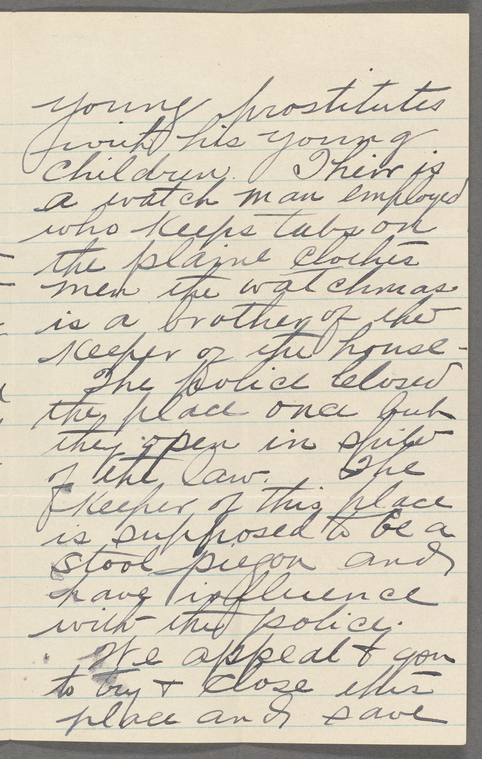 young prostitutes
with his young
children. Their is
a watch man employed
who keeps tabs on
the plaine clothes
men the watchman
is a brother of the
keeper of the house-
The police closed
the place once but
they open in spite
of the law. The
keeper of this place
is supposed to be a
stool piegon and
have influence
with the police.
We appeal t you
to try t close this
place and save